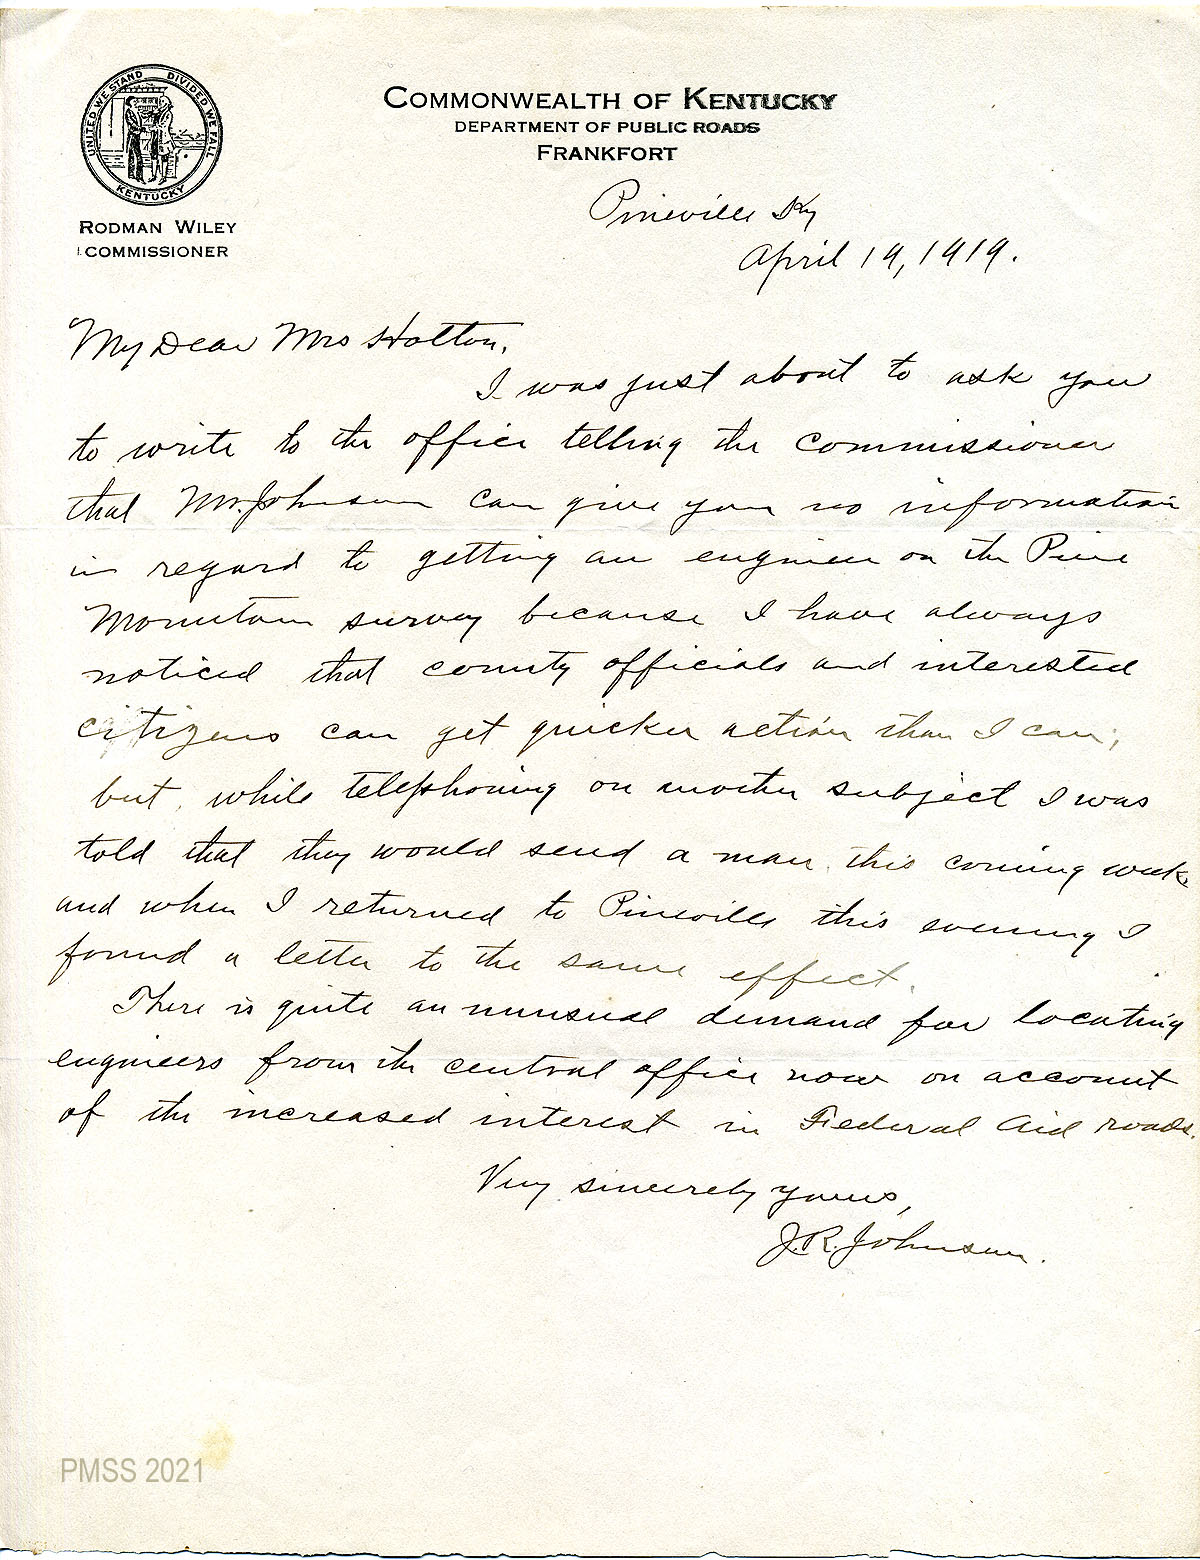 UNITED WE STAND DIVIDED WE FALL
KENTUCKY
COMMONWEALTH OF KENTUCKY
DEPARTMENT OF PUBLIC ROADS
FRANKFORT
RODMAN WILEY
COMMISSIONER
Pineville Ky
April 19, 1919.
My Dear Mrs Holton,
I was just about to ask you
to write to the office telling the commissioner
that Mr. Johnson can give you no information
in regard to getting an engineer on the Pine
Mountain survey because I have always
noticed that county officials and interested
citizens can get quicker action than I can;
but, while telephoning on another subject I was
told that they would send a man this coming week
and when I returned to Pineville this evening I
found a letter to the same effect.
There is quite an unusual demand for locating
engineers from the central office now on account
of the increased interest in Federal Aid roads.
Very sincerely yours,
J. R. Johnson.
PMSS 2021